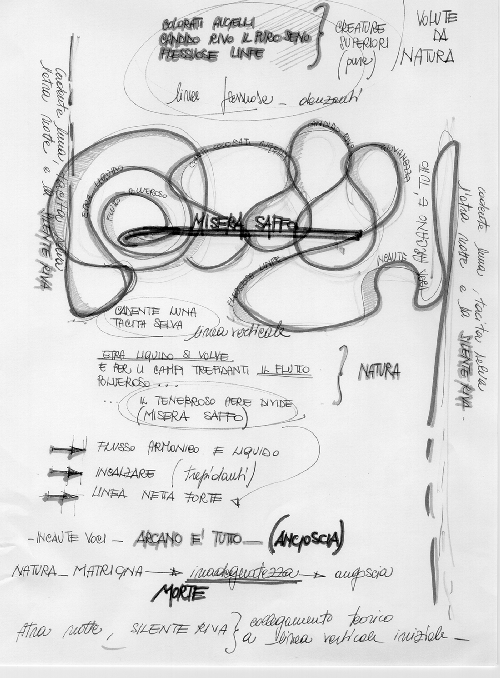 COLORATI AUGELLI
CANDIDO RIVO IL PURO SENO
FLESSUOSE LINFE
CREATURE
SUPERIORI
(pure)
VOLUTE
DA
NATURA
linea flessuosa - danzanti
cadente luna, tacita selva
l'atra notte e la SILENTE RIVA
ETRA LIQUIDO
FLUTTO POLVEROSO
COLORATI AUGELLI
CANDIDO RIVO
GIOVANEZZA
MISERA SAFFO
FLESSUOSE LINFE
INCAUTE VOCI
ARCANO E' TUTTO
cadente luna, tacita selva
l'atra notte e la SILENTE RIVA -
CADENTE LUNA
TACITA SELVA
linea verticale
ETRA LIQUIDO SI VOLVE
E PER LI CAMPI TREPIDANTI IL FLUTTO
POLVEROSO ....
NATURA
... IL TENEBROSO
DIVIDE
(MISERA SAFFO)
FLUSSO ARMONICO E LIQUIDO
INCALZARE (trepidanti)
LINEA NETTA FORTE
- INCAUTE VOCI - ARCANO E' TUTTO - (ANGOSCIA)
NATURA - MATRIGNA inadeguatezza angoscia
MORTE
Atra notte, SILENTE RIVA } collegamento teorico
a linea verticale iniziale -